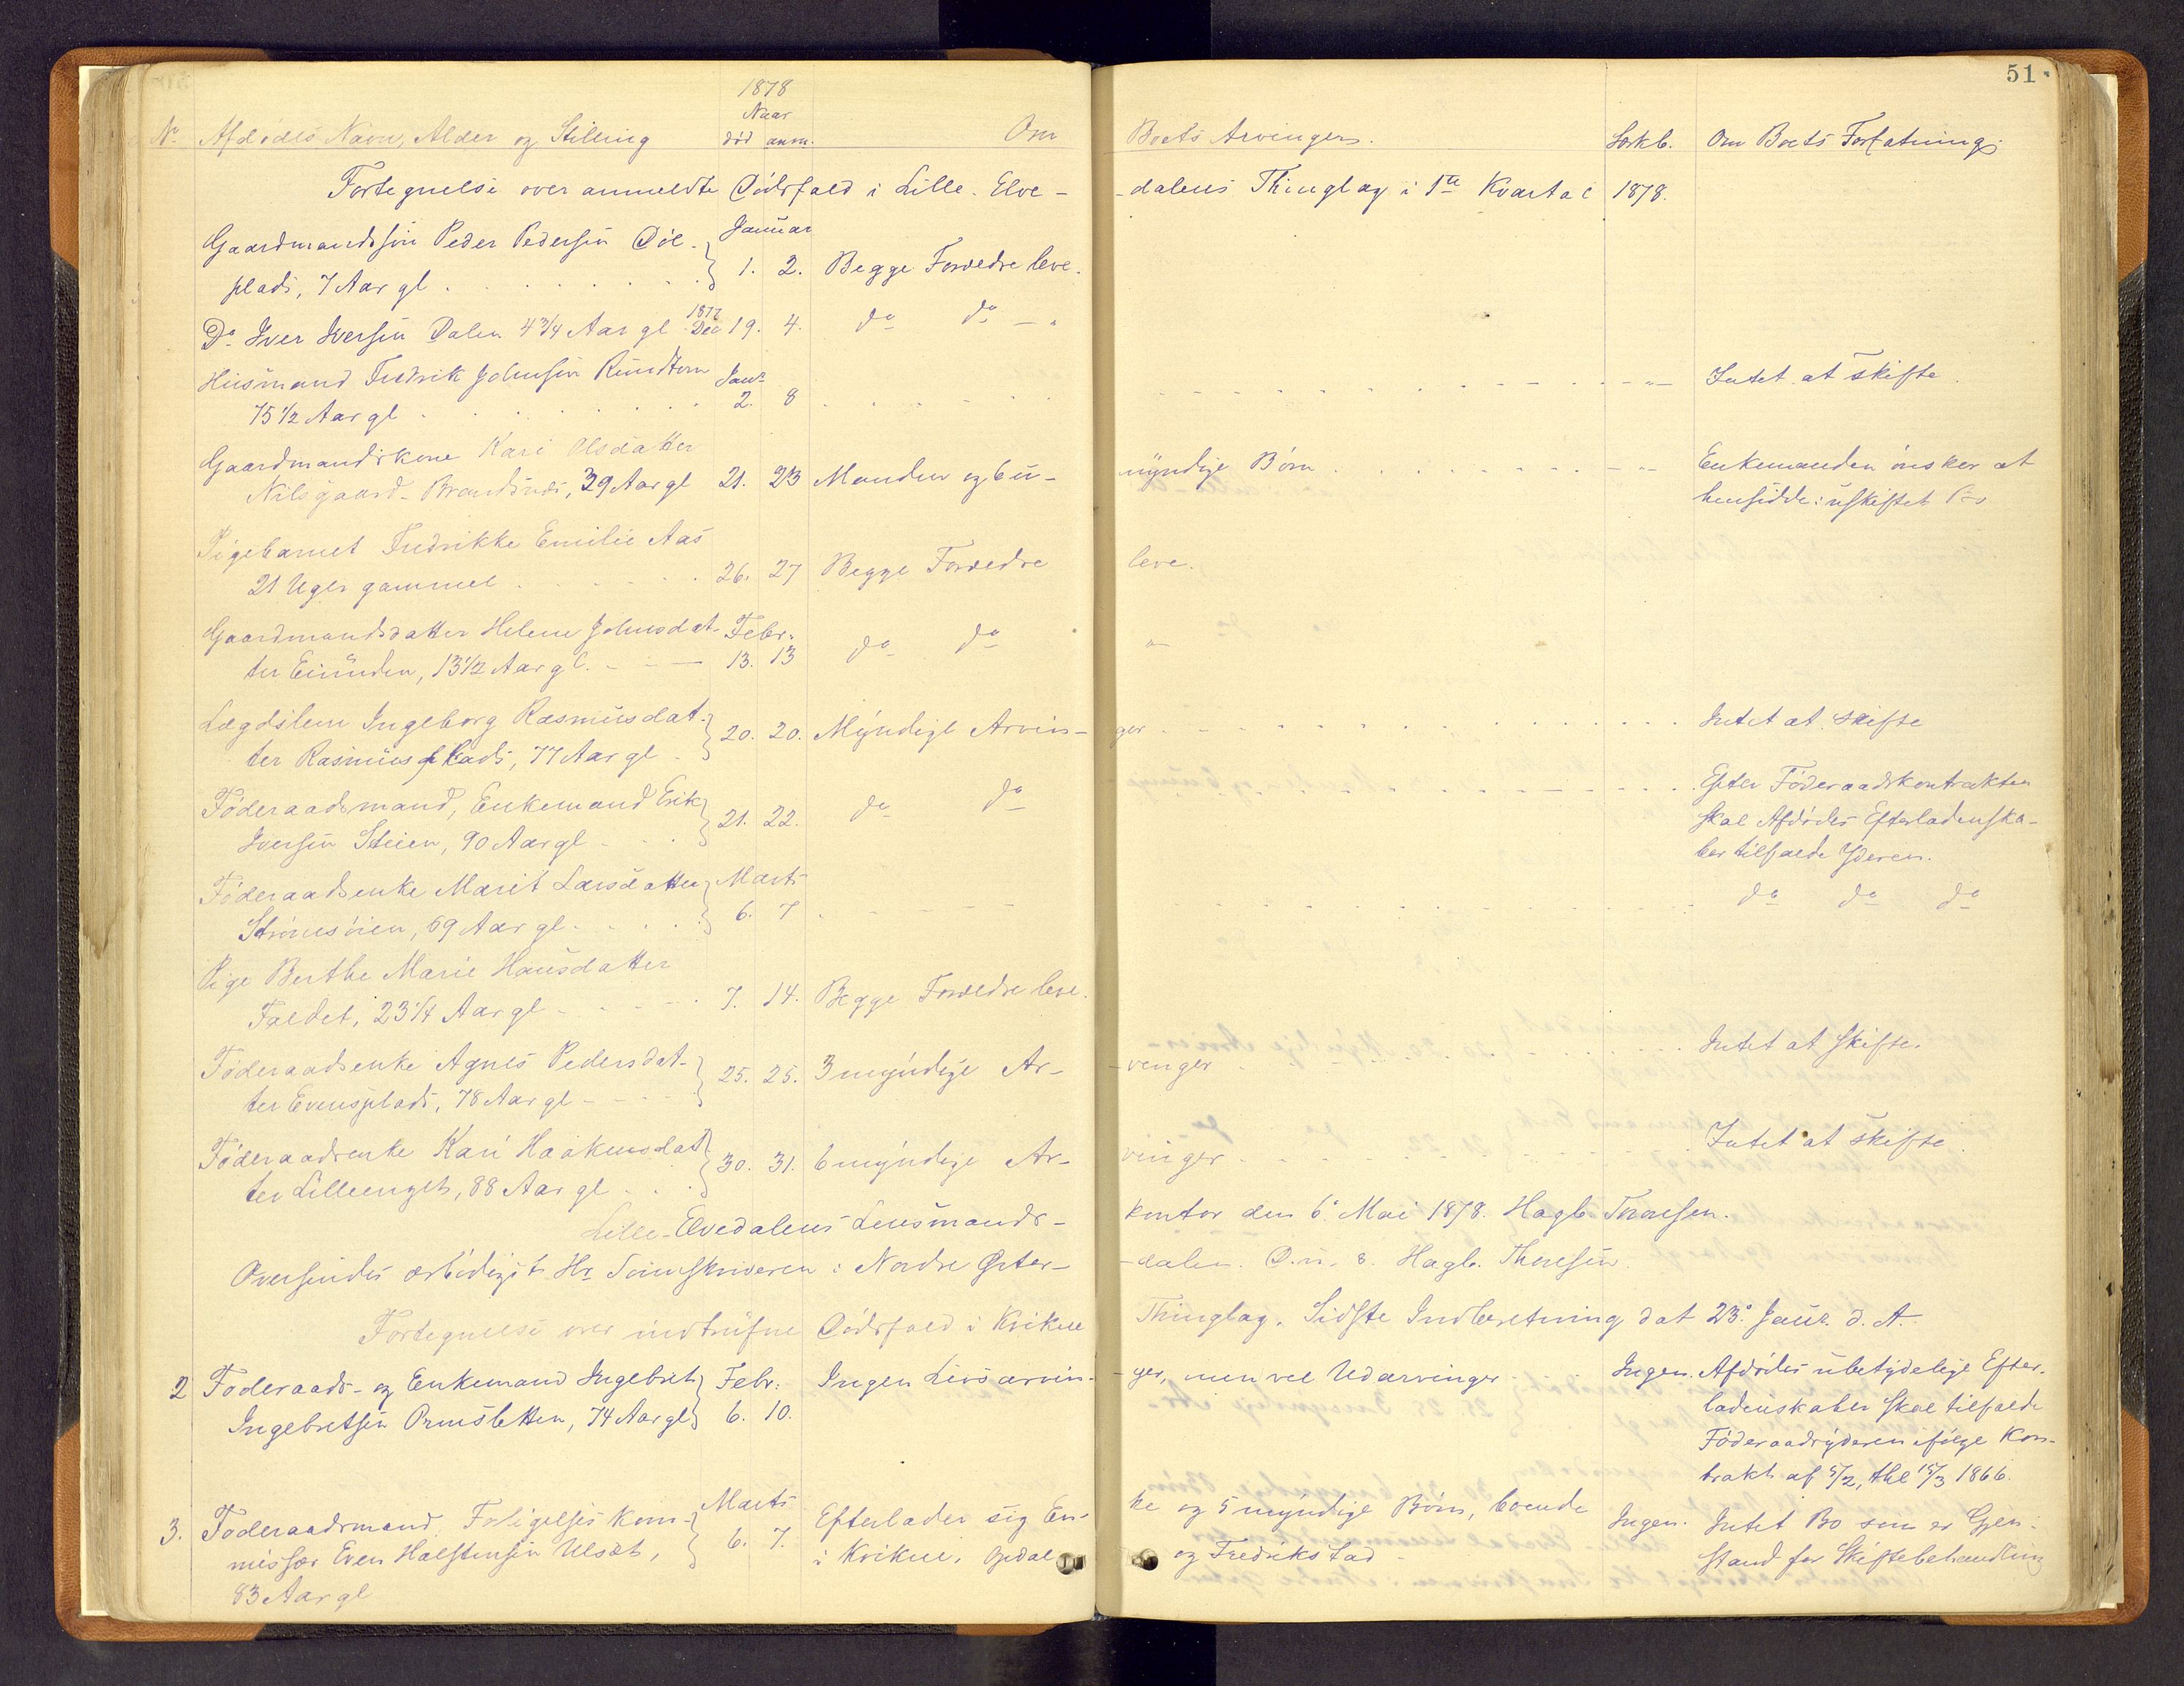 51.
1878
Naar
No Afdødes Navn, Alder og Stilling død anm. Om Boets Arvinger. Særkb. Om Boets Forfatning.
Fortegnelse over anmeldte Dødsfald i Lille-Elve-
-dalens Thinglag i 1te Kvartal 1878.
Gaardmandssøn Peder Pedersen Døl- Januar
plads, 7 Aar gl. 1. 2. Begge Forældre leve.
Do Iver Iversen Dalen 4 3/4 Aar gl 1877 Dec 19. 4. do do - "
Husmand Fredrik Johnsen Rundtom Janr
75 1/2 Aar gl 2. 8 - " - Intet at skifte.
Gaardmandskone Kari Olsdatter
Nilsgaard-Brandsnæs, 39 Aar gl 21. 23 Manden og 6 u-
myndige Børn - " - Enkemanden ønsker at
hensidde i uskiftet Bo
Pigebarnet Fredrikke Emilie Aas
21 Uger gammel 26. 27 Begge Forældre leve.
Gaardmandsdatter Helene Johnsdat- Febr.
ter Eiunden, 13 1/2 Aar gl. 13. 13 do do "
Lægdslem Ingeborg Rasmusdat-
ter Rasmusplads, 77 Aar gl 20. 20. Myndige Arvin-
ger Intet at skifte
Føderaadsmand, Enkemand Erik
Iversen Steien, 90 Aar gl 21. 22. do do
Efter Føderaadskontrakten
skal Afdødes Efterladenska-
ber tilfalde Yderen.
Føderaadsenke Marit Larsdatter Marts
Strømsøien, 69 Aar gl. 6. 7 do do do
Pige Berthe Marie Hansdatter
Faldet, 23 1/4 Aar gl 7. 14. Begge Forældre leve.
Føderaadsenke Agnes Pedersdat-
ter Evensplads, 78 Aar gl 25. 25. 3 myndige Ar-
-venger Intet at skifte.
Føderaadsenke Kari Haakensdat
ter Lilleenget, 88 Aar gl 30. 31. 6 myndige Ar-
vinger Intet at skifte.
Lille-Elvedalens Lensmands-
kontor den 6. Mai 1878. Hagb. Thoresen.
Oversendes ærbødigst Hr Sorenskriveren i Nordre Øster-
-dalen. D.u.s. Hagb. Thoresen.
Fortegnelse over indtrufne Dødsfald i Kvikne
Thinglag. Sidste Indberetning dat 23. Janr. d. A.
2 Føderaads- og Enkemand Ingebret Febr.
Ingebretsen Ormsletten, 74 Aar gl 6. 10. Ingen Livsarvin-
-ger, men vel Udarvinger Ingen. Afdødes ubetydelige Efter-
ladenskaber skal tilfalde
Føderaadsyderen ifølge Kon-
trakt af 5/2, thl 15/3 1866.
3. Føderaadsmand, Forligelseskom- Marts
missær Even Halstensen Ulsæt, 6. 7. Efterlader sig En-
83 Aar gl
ke og 5 myndige Børn, boende
i Kvikne, Opdal og Fredrikstad - Ingen. Intet Bo som er Gjen-
stand for Skiftebehandling